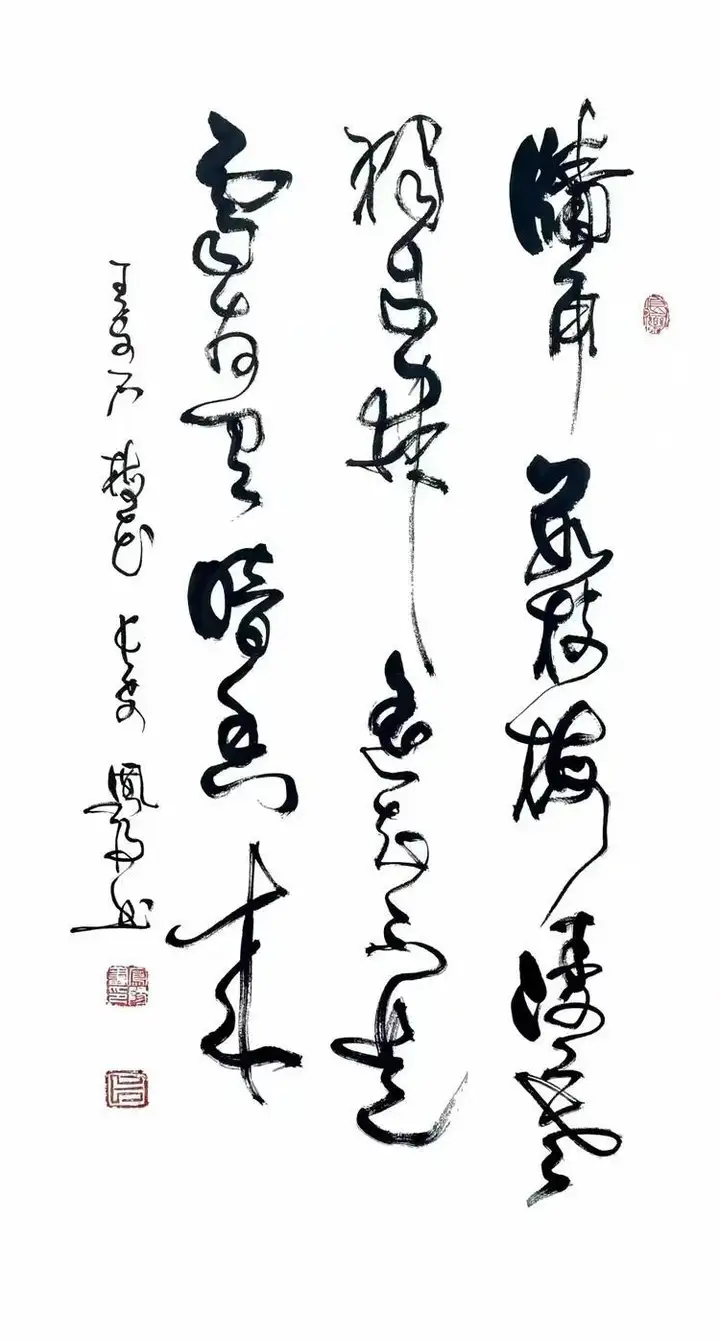 牆角數枝梅凌寒
獨自開遙知不是
雪為有暗香來
王安石梅花長安鳳書